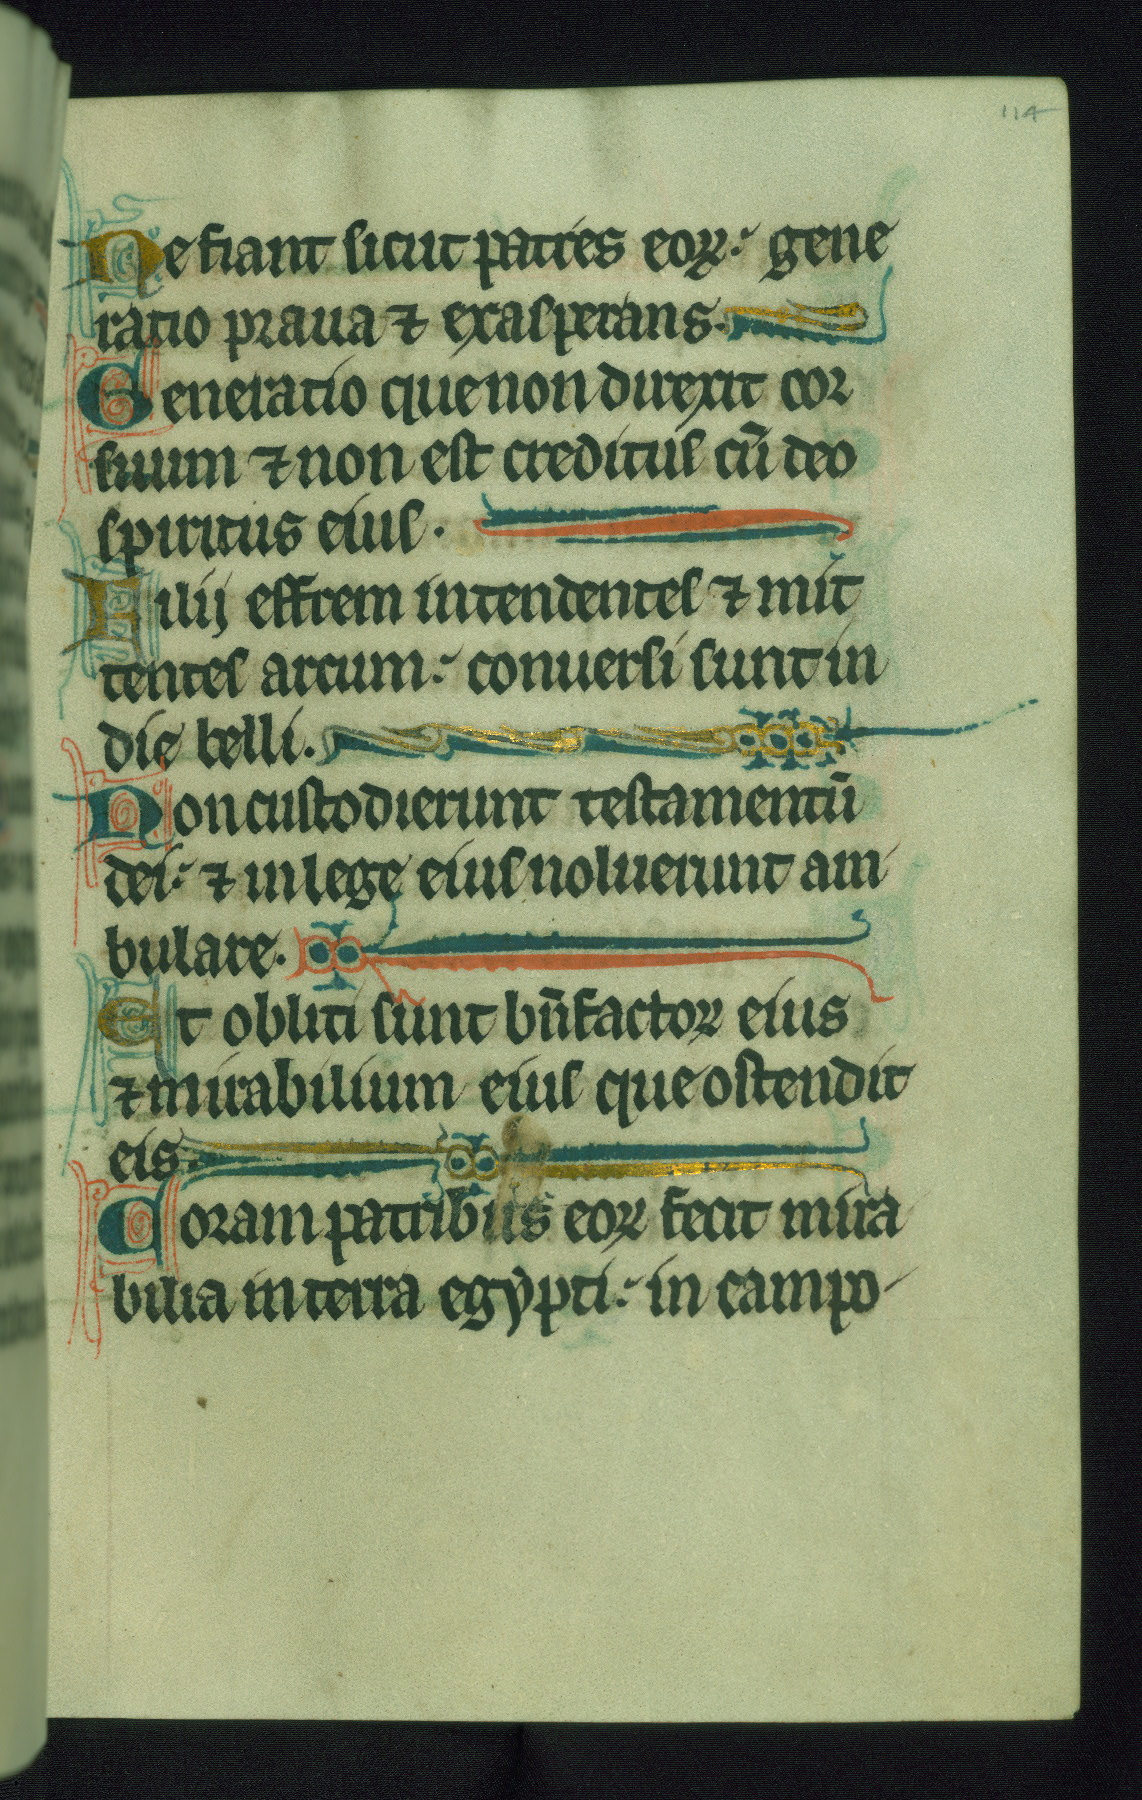 114
Ne fiant sicut patres eoꝝ: gene
ratio praua ⁊ exasperans.
Generatio que non direxit cor
suum ⁊ non est creditus cū deo
spiritus eius.
Filij effrem intendentes ⁊ mit
tentes arcum: conuersi sunt in
die belli.
Non custodierunt testamentū
dei: ⁊ in lege eius noluerunt am
bulare.
Et obliti sunt bn̄factoꝝ eius
⁊ mirabilium eius que ostendit
eis.
Coram patribus eoꝝ fecit mira
bilia in terra egypti: in campo